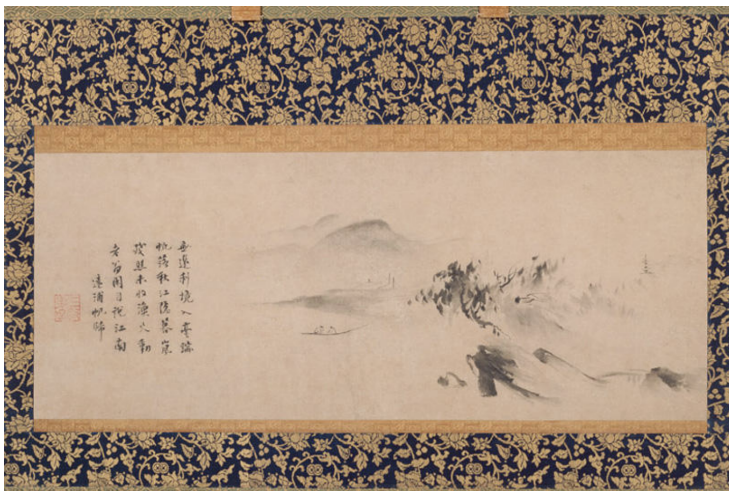 無邊刹境入毫端
帆落秋江隱暮嵐
殘照未收漁火動
老翁閑自説江南
遠浦帆歸